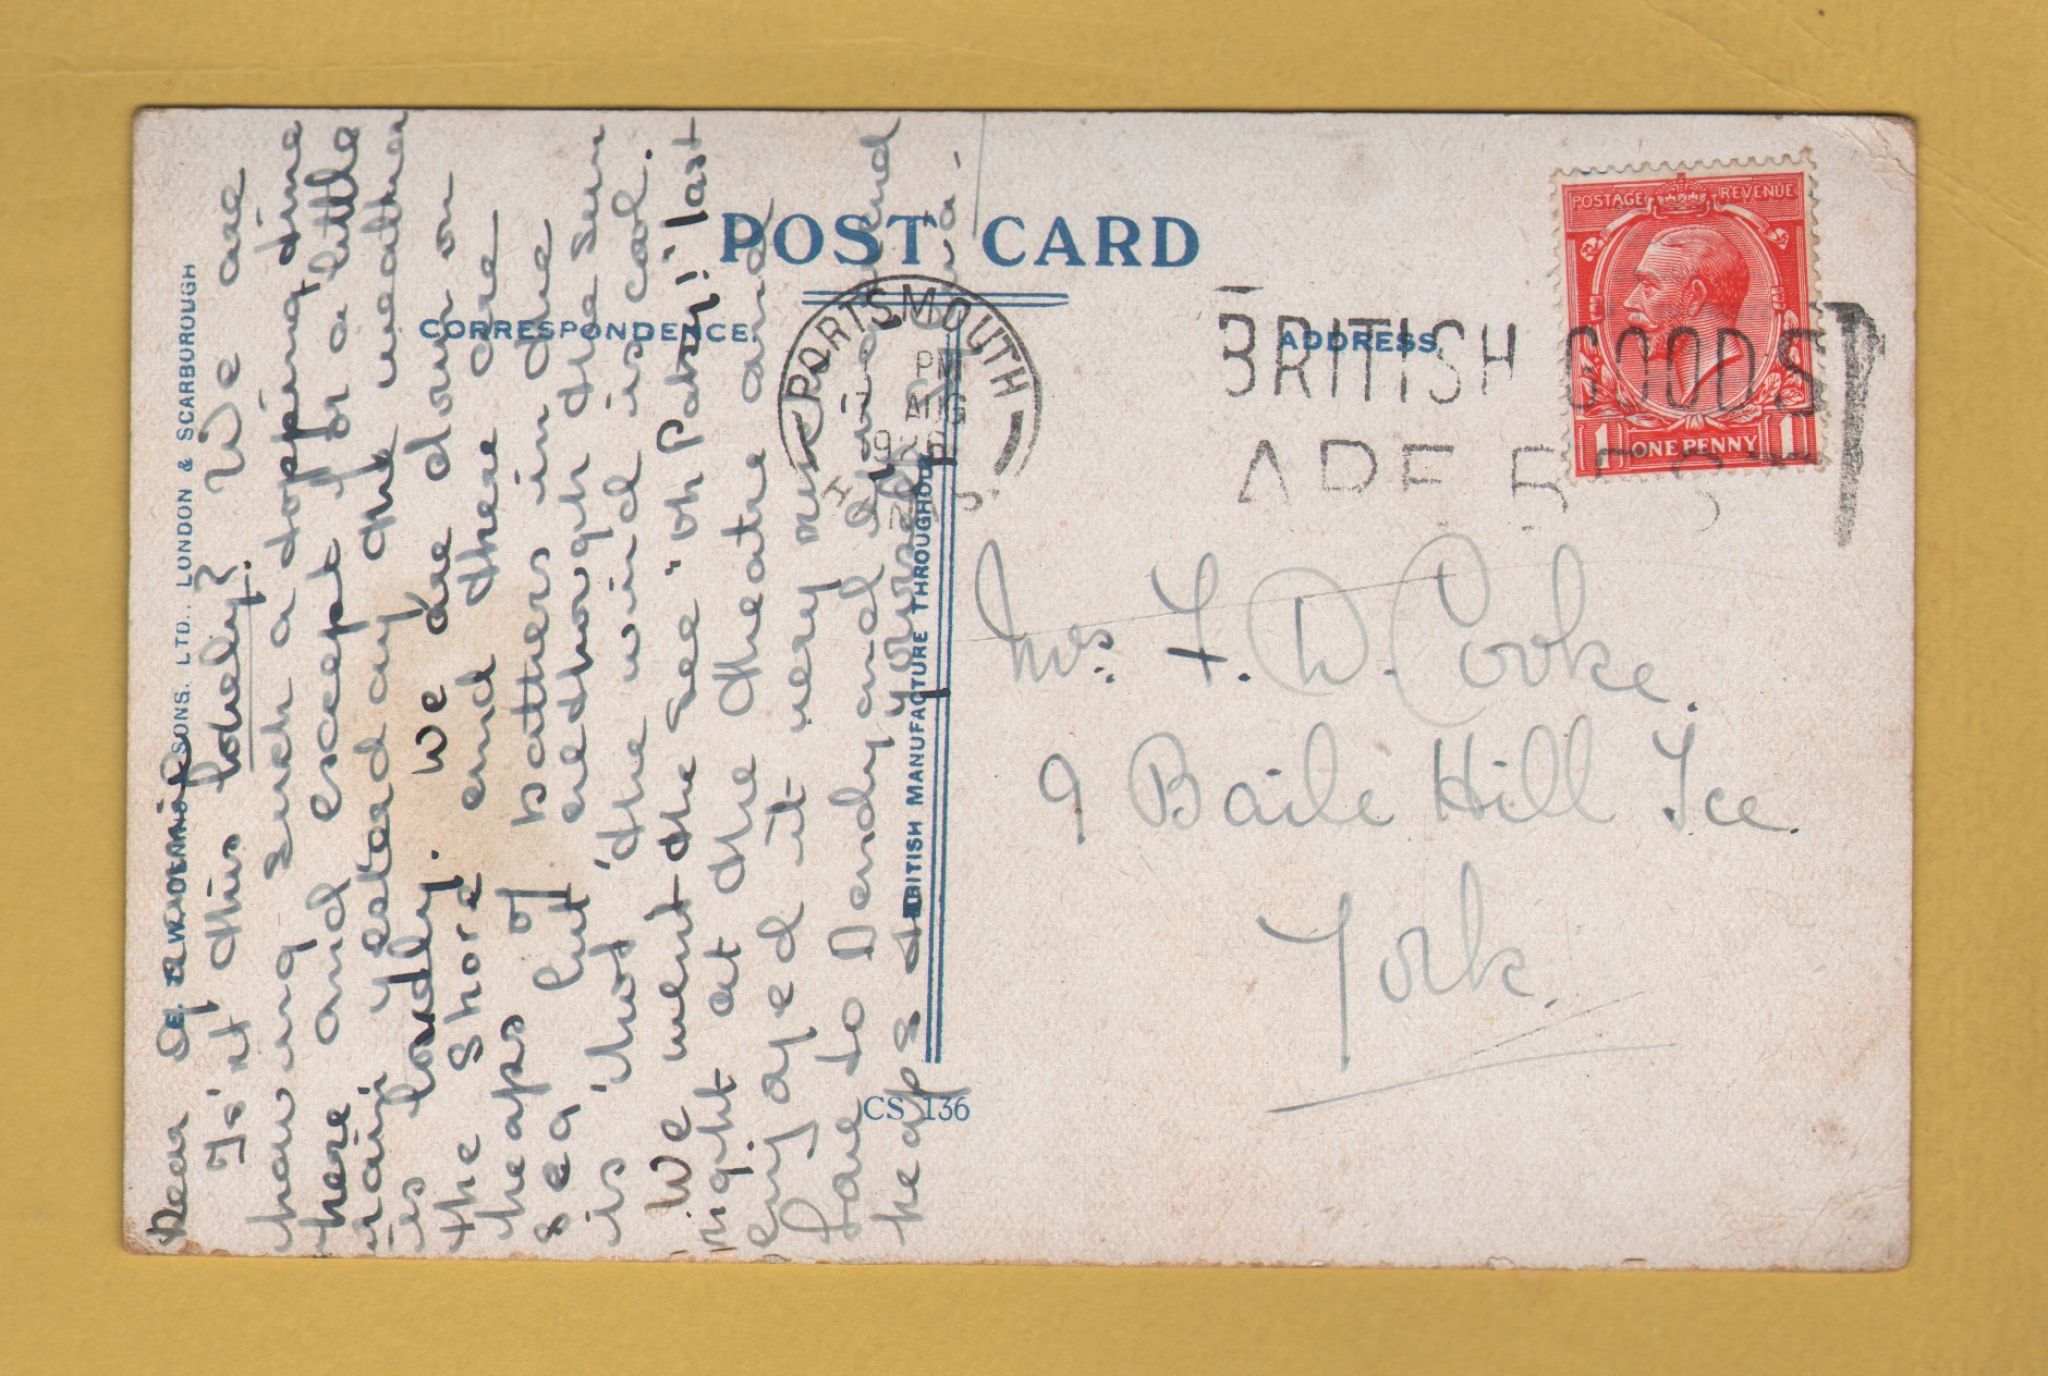 POST CARD
CORRESPONDENCE
ADDRESS
E. T. W. DENNIS & SONS. LTD., LONDON & SCARBOROUGH
BRITISH MANUFACTURE THROUGHOUT
CS 136
PORTSMOUTH
PM
AUG
HANTS.
BRITISH GOODS
ARE BEST
POSTAGE REVENUE
1 ONE PENNY 1
Mrs. F. W. Cooke.
9 Baile Hill Tce.
York.
Dear
Is'nt this lovely? We are
having such a topping time
here and except for a little
rain yesterday the weather
is lovely. We are down on
the shore and there are
heaps of bathers in the
sea but although the sun
is 'hot' the wind is cool.
We went the see "oh Patsy!" last
night at the theatre and
enjoyed it very much
Love to Dendy and and
heaps yourself